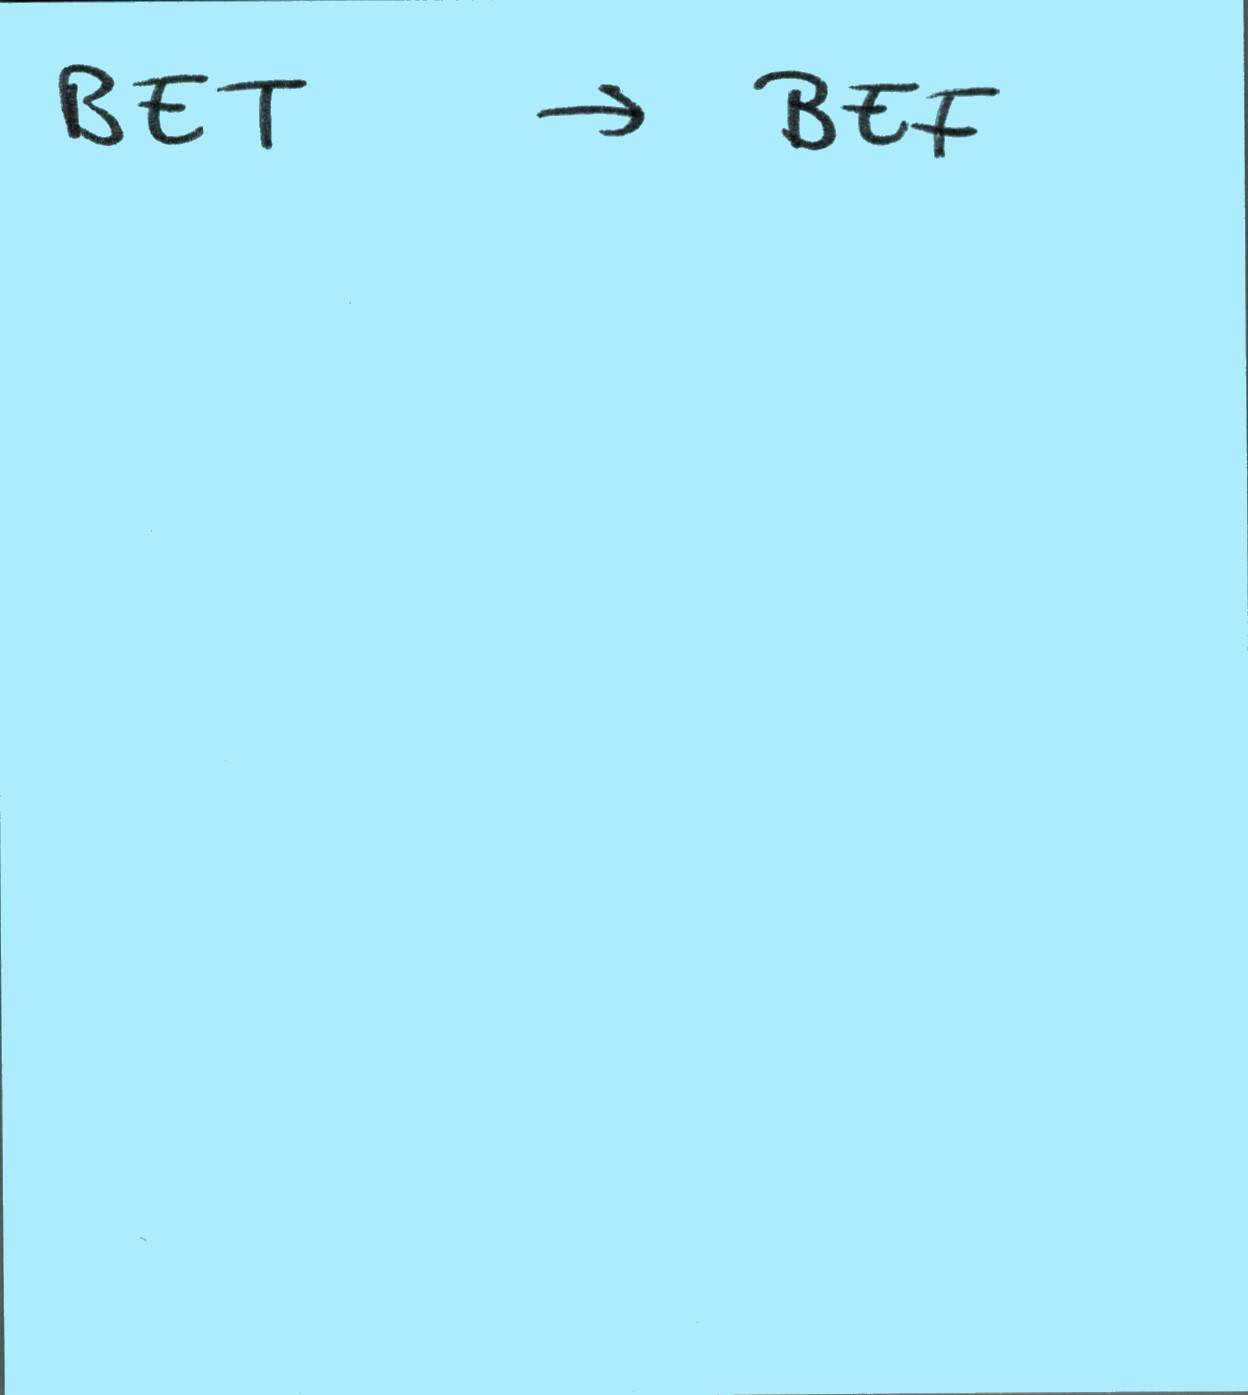 BET → BEF